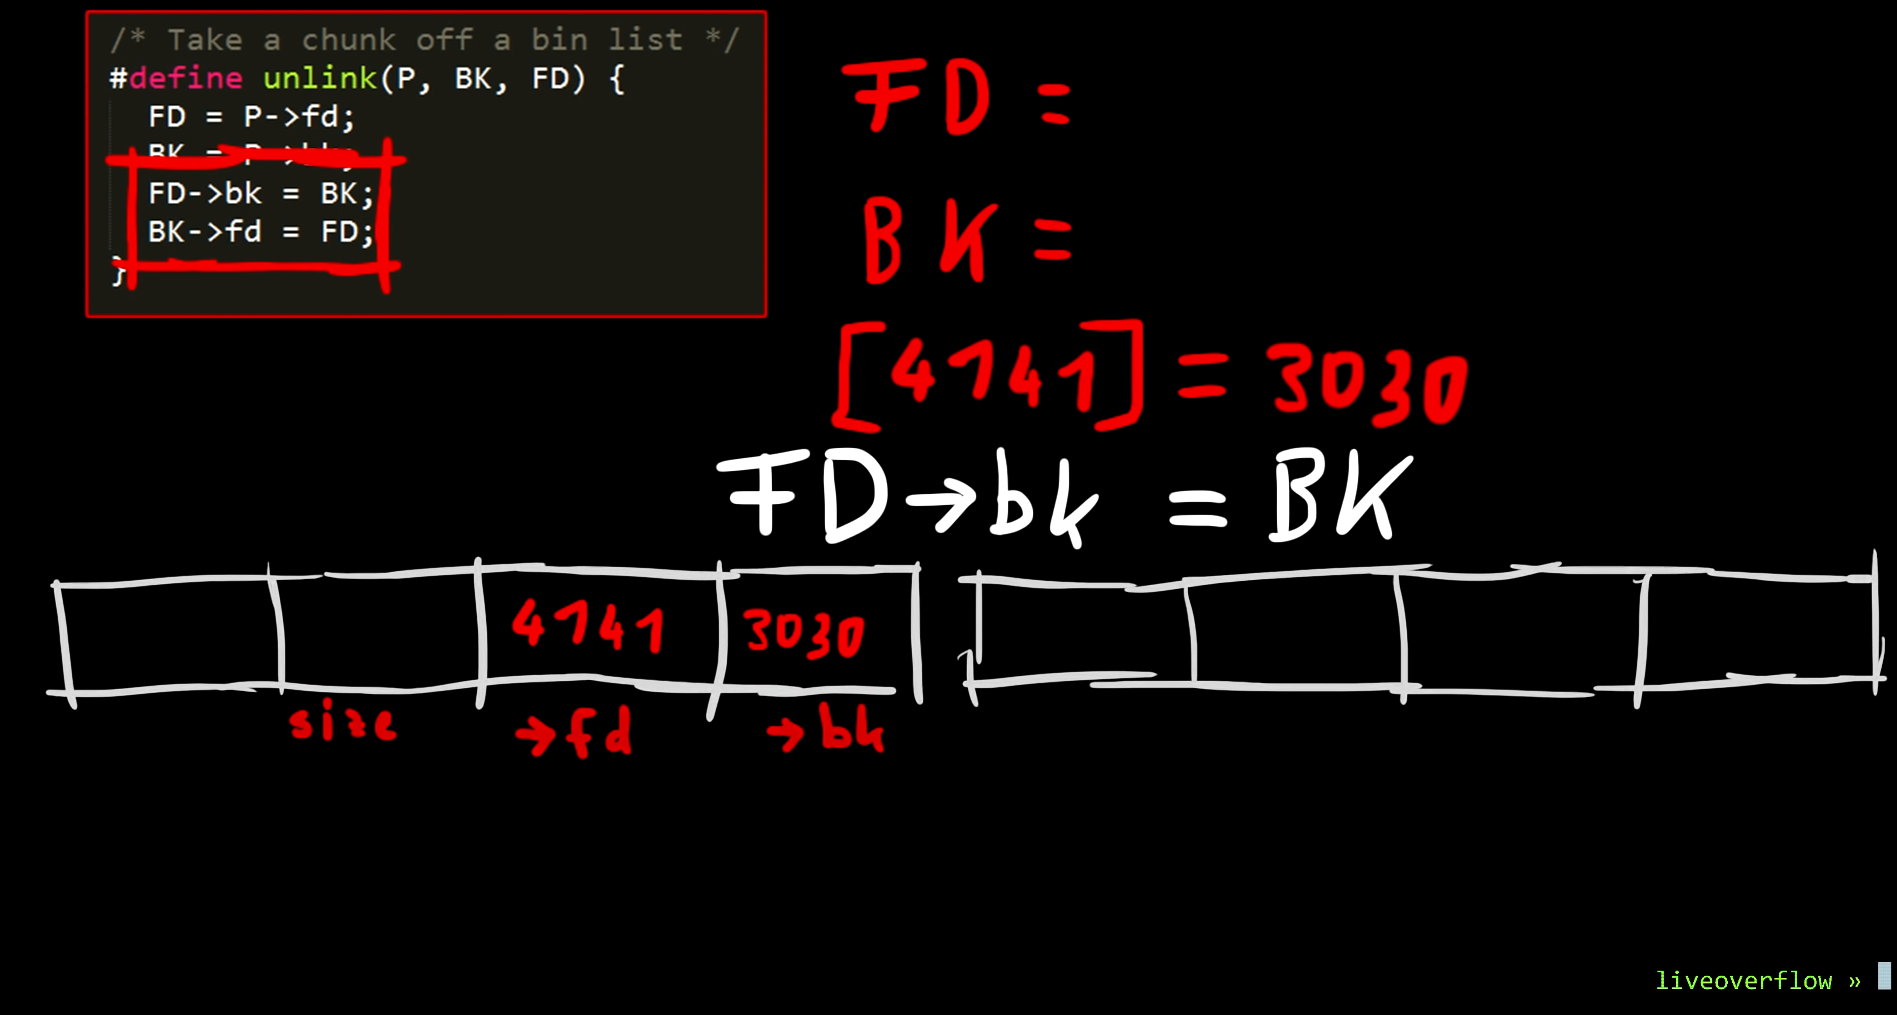 /* Take a chunk off a bin list */
#define unlink(P, BK, FD) {
FD = P->fd;
BK = P->bk;
FD->bk = BK;
BK->fd = FD;
}
FD =
BK =
[4141] = 3030
FD→bk = BK
4141 3030
size →fd →bk
liveoverflow »